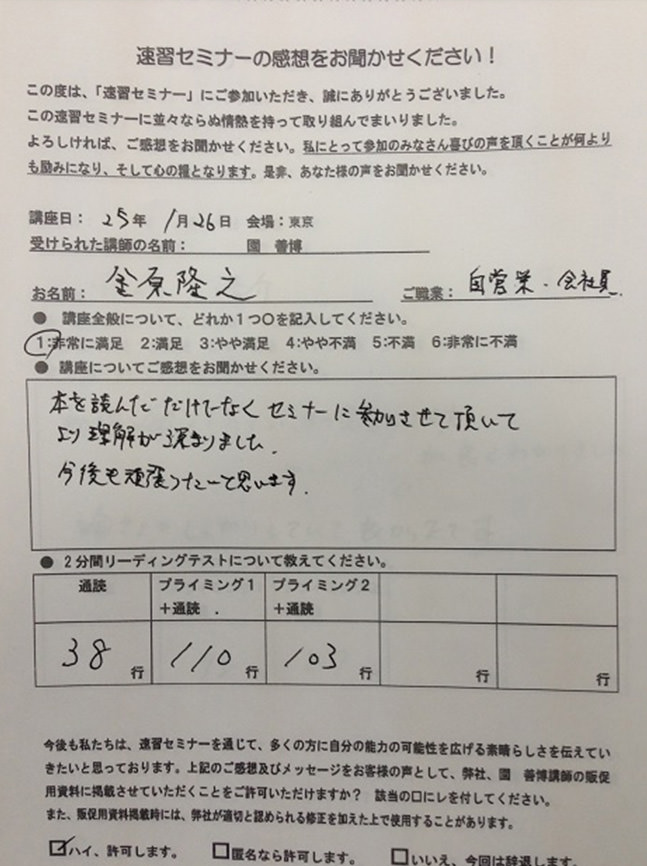 速習セミナーの感想をお聞かせください！
この度は、「速習セミナー」にご参加いただき、誠にありがとうございました。
この速習セミナーに並々ならぬ情熱を持って取り組んでまいりました。
よろしければ、ご感想をお聞かせください。私にとって参加のみなさん喜びの声を頂くことが何より
も励みになり、そして心の糧となります。是非、あなた様の声をお聞かせください。
講座日： 25年 1月26日 会場：東京
受けられた講師の名前： 園 善博
お名前： 金原隆之 ご職業： 自営業・会社員
● 講座全般について、どれか１つ○を記入してください。
1：非常に満足 2：満足 3：やや満足 4：やや不満 5：不満 6：非常に不満
● 講座についてご感想をお聞かせください。
本を読んだだけでなくセミナーに参加させて頂いて
より理解が深まりました。
今後も頑張ったいと思います。
● 2分間リーディングテストについて教えてください。
通読 プライミング1 プライミング2
＋通読 ＋通読
38行 110行 103行 行 行
今後も私たちは、速習セミナーを通じて、多くの方に自分の能力の可能性を広げる素晴らしさを伝えてい
きたいと思っております。上記のご感想及びメッセージをお客様の声として、弊社、園 善博講師の販促
用資料に掲載させていただくことをご許可いただけますか？ 該当の口にレを付してください。
また、販促用資料掲載時には、弊社が適切と認められる修正を加えた上で使用することがあります。
☑ハイ、許可します。 □匿名なら許可します。 □いいえ、今回は辞退します。